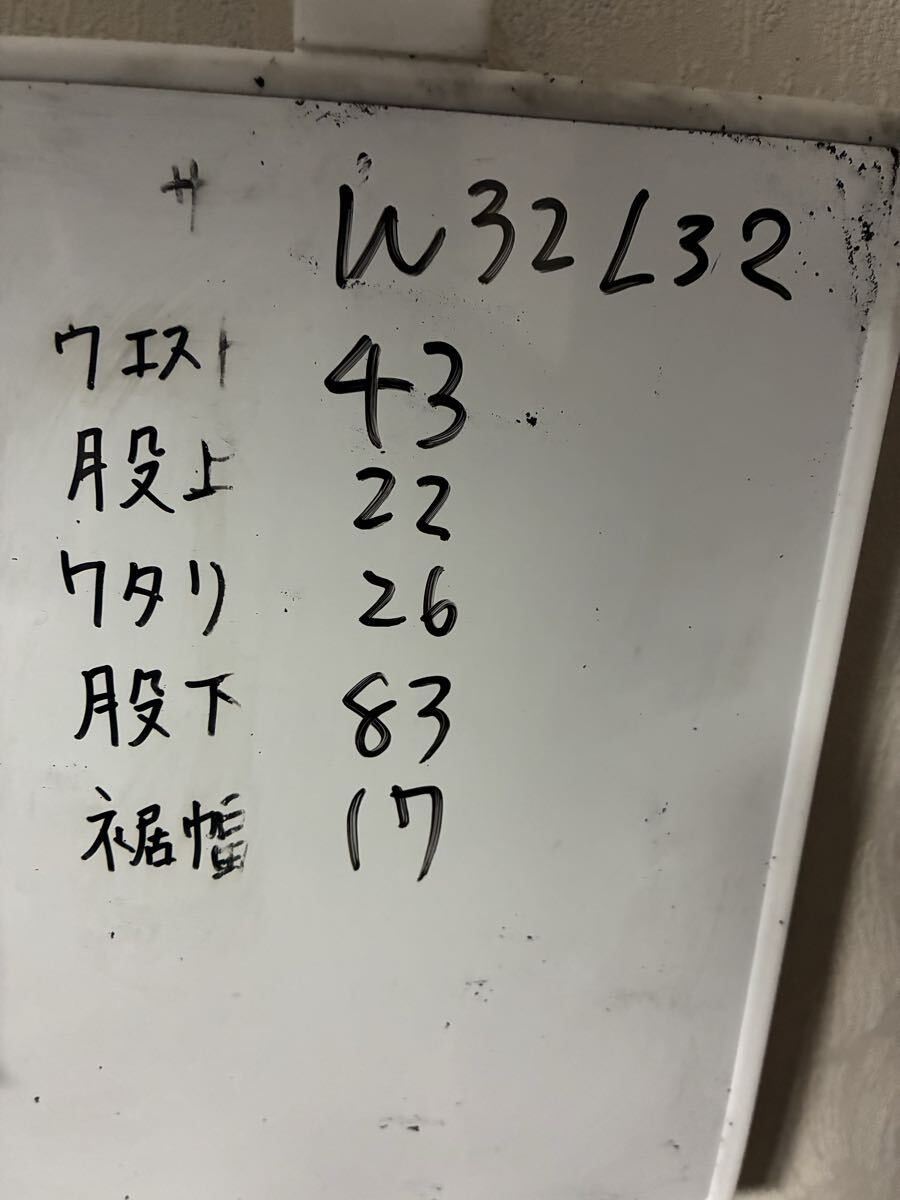 サ W32 L32
ウエスト 43
股上 22
ワタリ 26
股下 83
裾幅 17